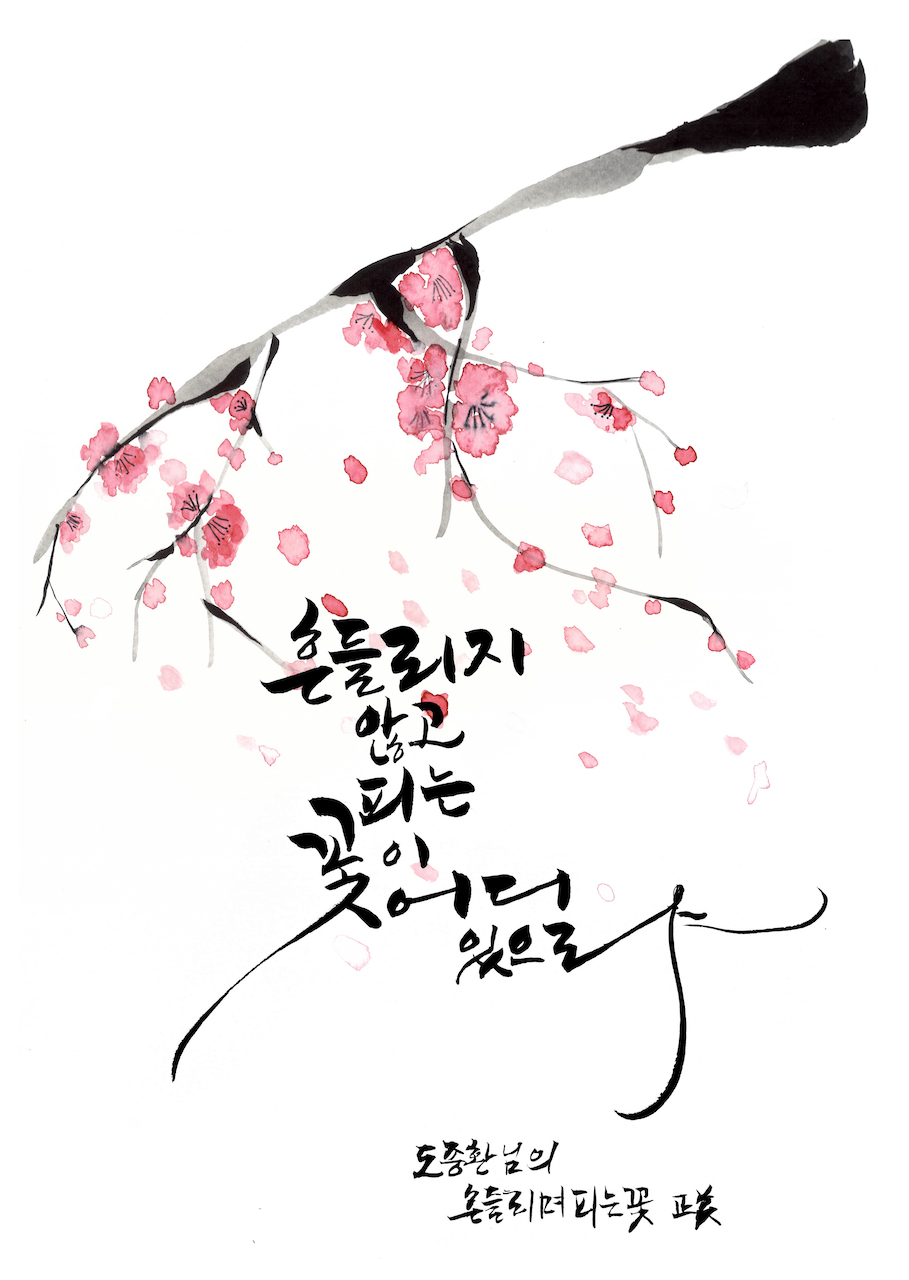 흔들리지
않고
피는
꽃이
어디
있으랴
도종환님의
흔들리며 피는 꽃 正美